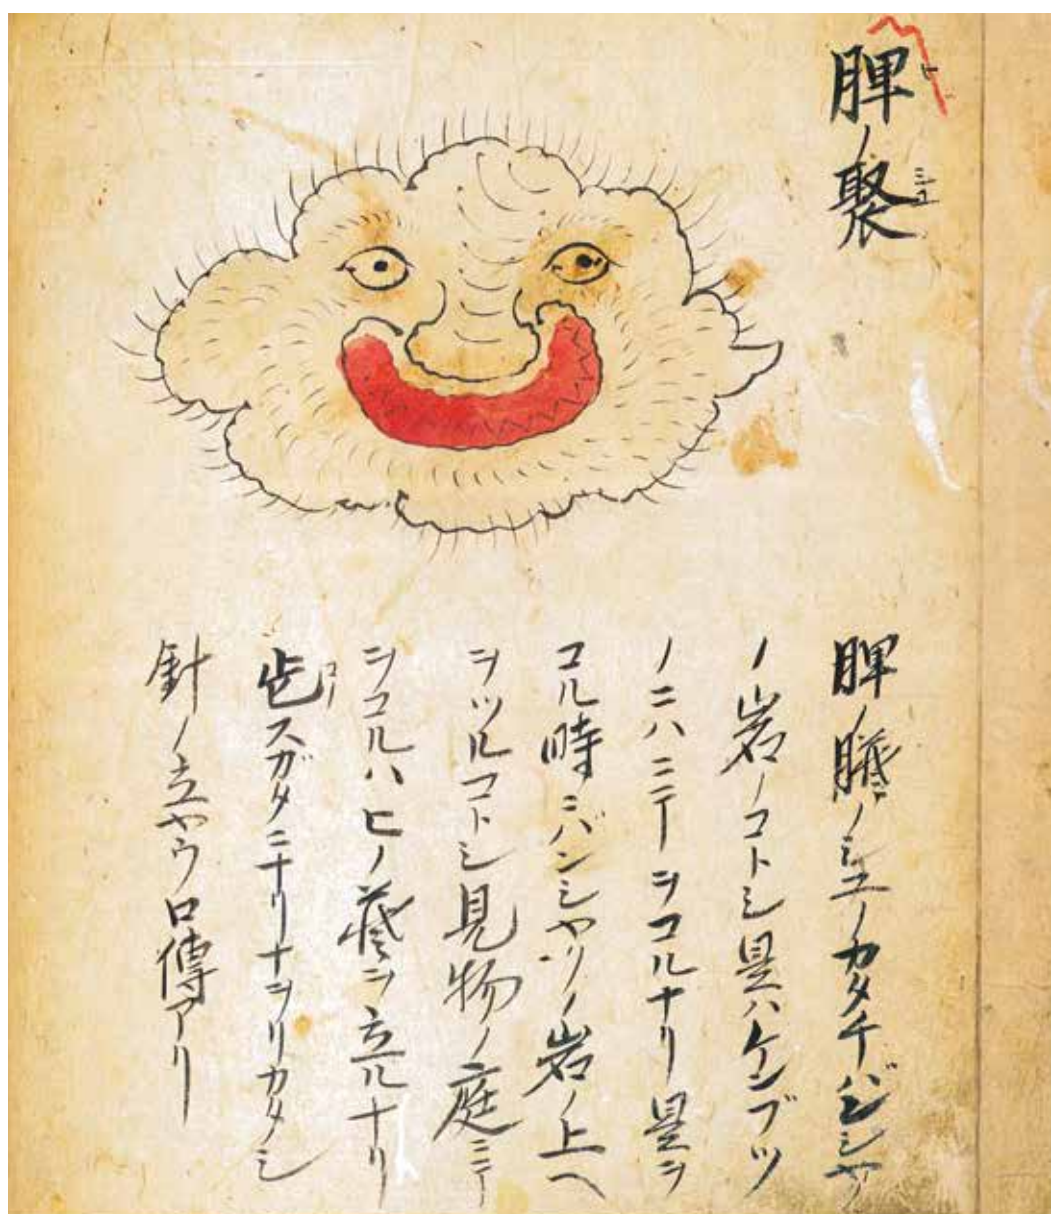 脾ノ聚
ヒ
シユ
脾ノ臓ノシユノカタチバンシヤク
ノ岩ノコトシ是ハケンブツ
ノニハニテヲコルナリ是ヲ
コル時ニバンシヤクノ岩ノ上ヘ
ヲツルコトシ見物ノ庭ニテ
ヲコルハヒノ蔵ヲ立ルナリ
コノ
此スガタニナリナヲリカタシ
針ノ立ヤウ口傳アリ